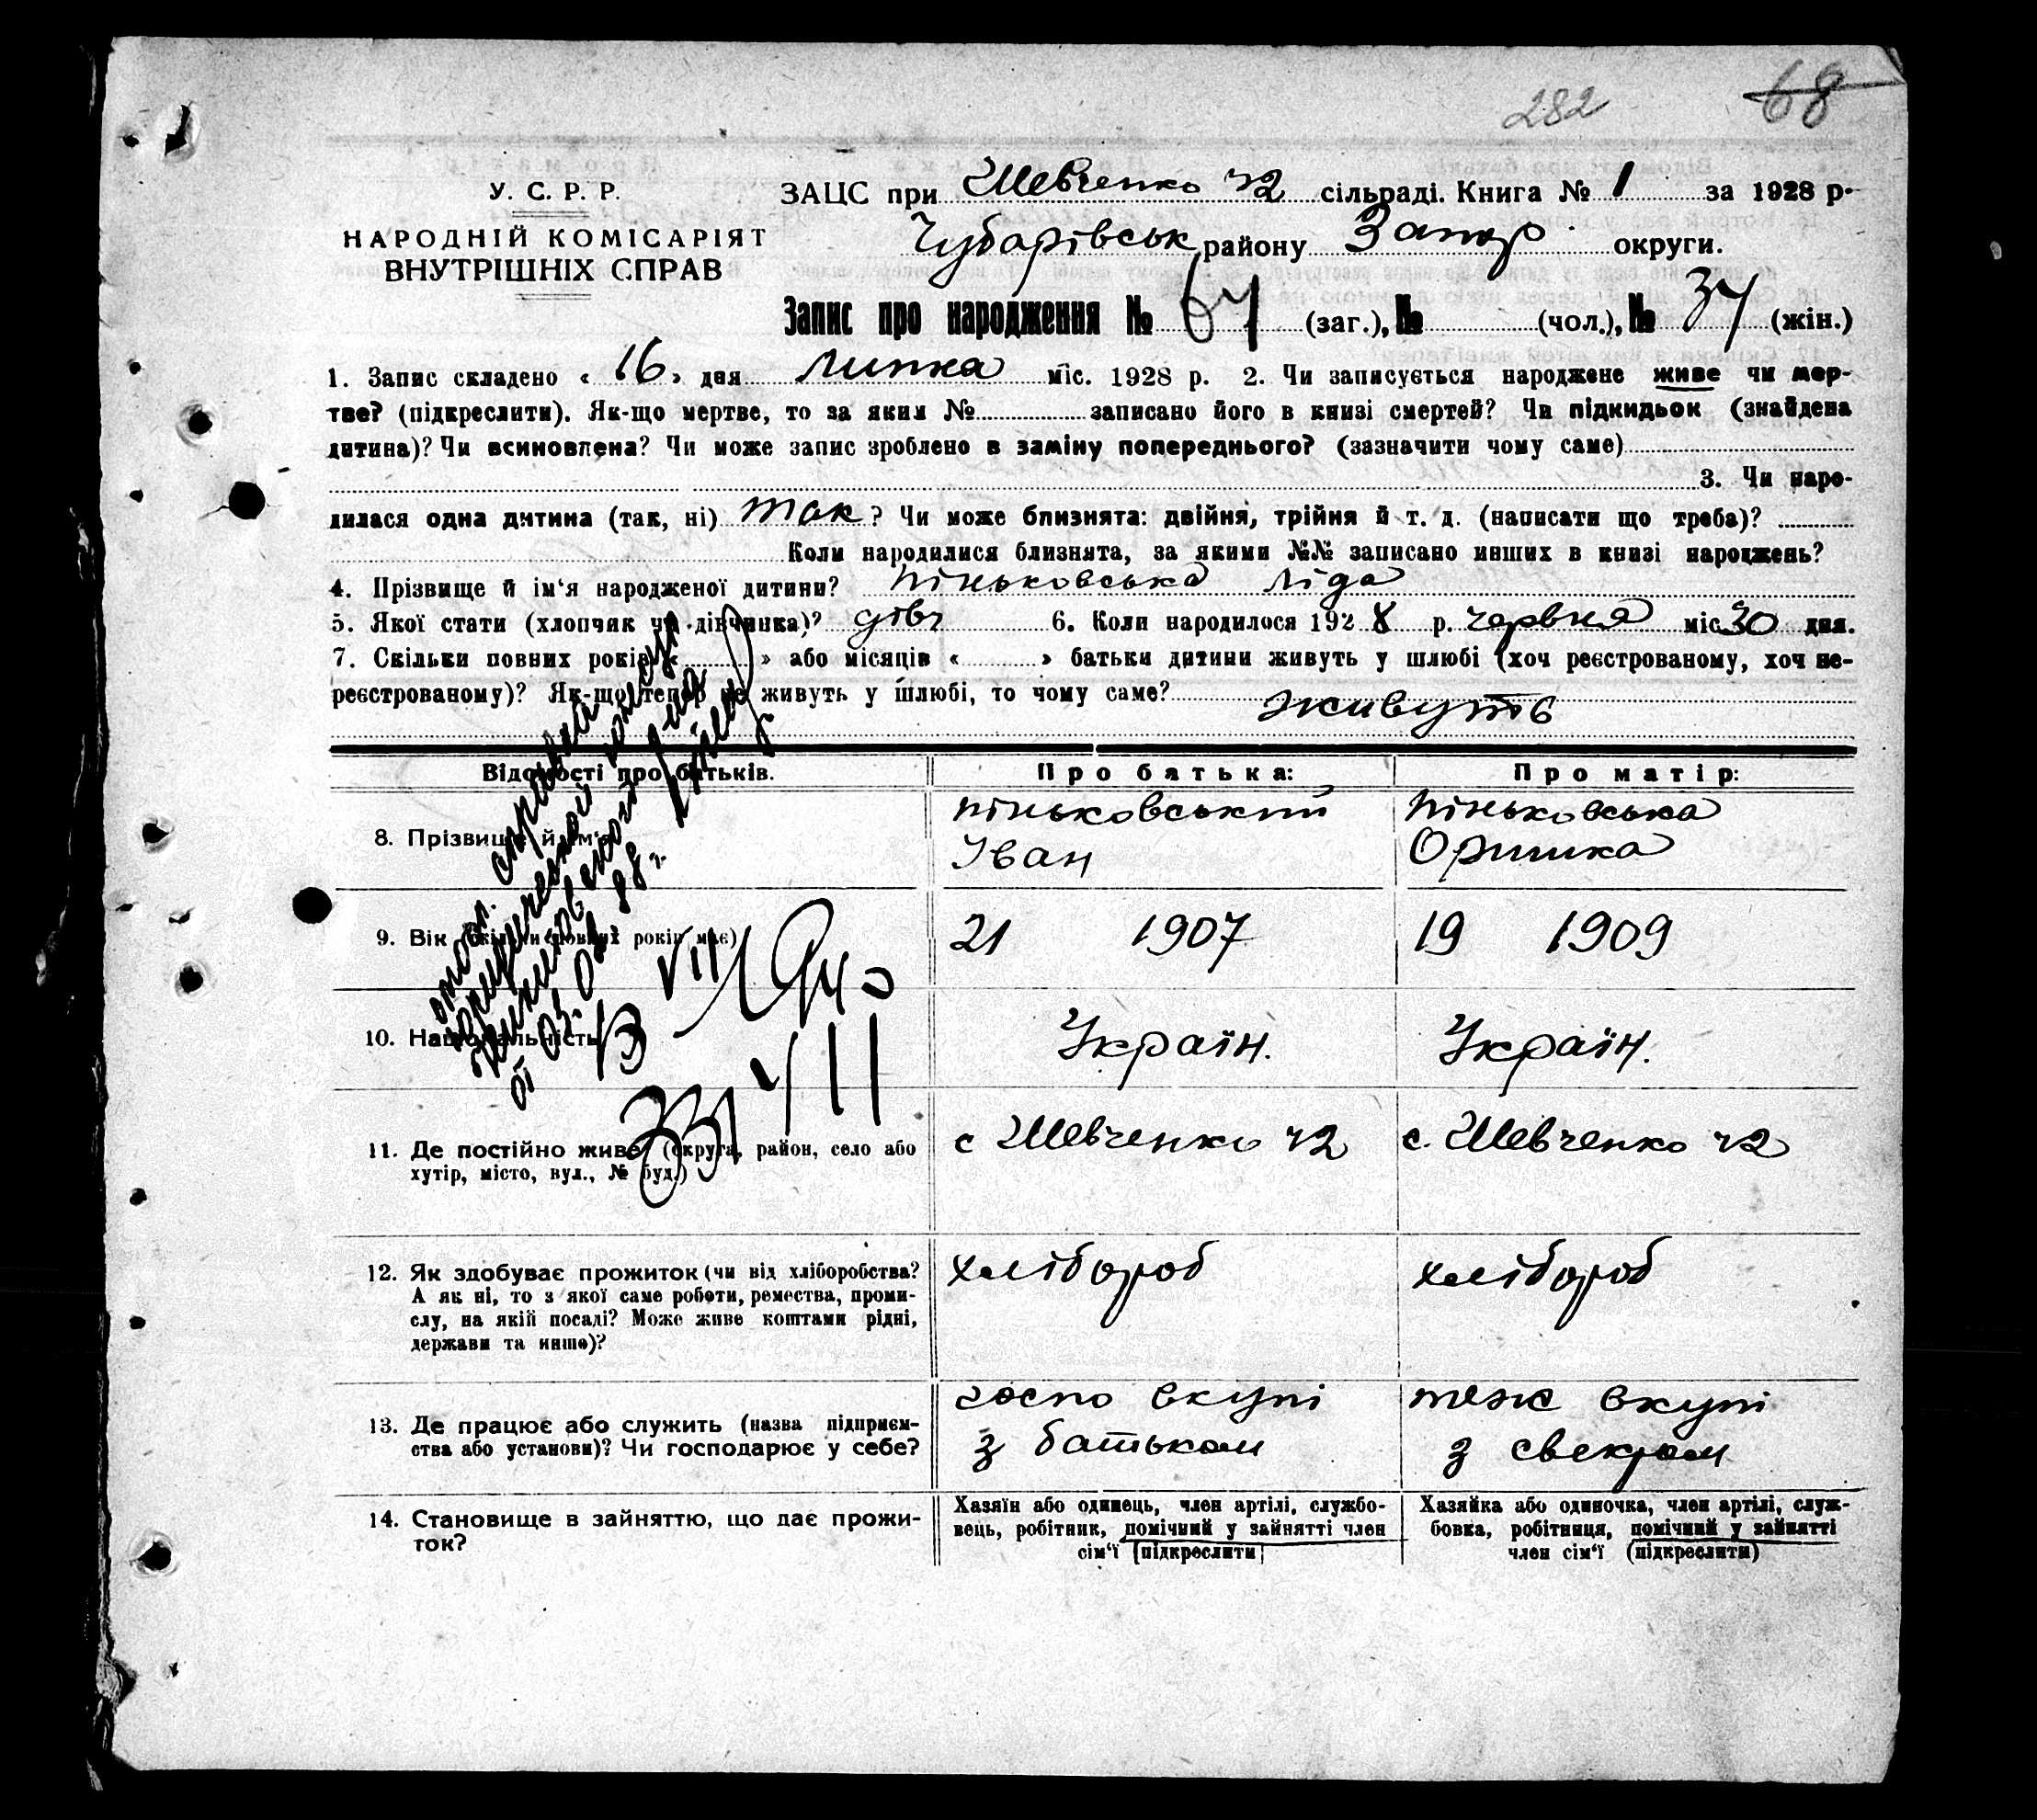 282 68
У. С. Р. Р.
НАРОДНІЙ КОМІСАРІЯТ
ВНУТРІШНІХ СПРАВ
ЗАЦС при Шевченко ч2 сільраді. Книга № 1 за 1928 р.
Чубарівськ району Запор. округи.
Запис про народження № 67 (заг.), № (чол.), № 37 (жін.)
1. Запис складено « 16 » дня липня міс. 1928 р. 2. Чи записується народжене живе чи мер-
тве? (підкреслити). Як-що мертве, то за яким № записано його в книзі смертей? Чи підкидьок (знайдена
дитина)? Чи всиновлена? Чи може запис зроблено в заміну попереднього? (зазначити чому саме)
3. Чи наро-
дилася одна дитина (так, ні) так ? Чи може близнята: двійня, трійня й т. д. (написати що треба)?
Коли народилися близнята, за якими №№ записано инших в книзі народжень?
4. Прізвище й ім‘я народженої дитини? Піньковська Ліда
5. Якої стати (хлопчик чи дівчинка)? дівч 6. Коли народилося 1928 р. червня міс 30 дня.
7. Скільки повних років « » або місяців « » батьки дитини живуть у шлюбі (хоч реєстрованому, хоч не-
реєстрованому)? Як-що тепер не живуть у шлюбі, то чому саме? живуть
Відомості про батьків. Про батька: Про матір:
8. Прізвище й ім‘я
Піньковський
Іван
Піньковська
Оришка
9. Вік (скільки повних років має)
21 1907
19 1909
10. Національність
Україн.
Україн.
11. Де постійно живе (округа, район, село або
хутір, місто, вул., № буд.)
с Шевченко ч2
с. Шевченко ч2
12. Як здобуває прожиток (чи від хліборобства?
А як ні, то з якої саме роботи, ремества, проми-
слу, на якій посаді? Може живе коштами рідні,
держави та инше)?
хлібороб
хлібороб
13. Де працює або служить (назва підприєм-
ства або установи)? Чи господарює у себе?
госпо вкупі
з батьком
теж вкупі
з свекром
14. Становище в зайняттю, що дає прожи-
ток?
Хазяїн або одинець, член артілі, службо-
вець, робітник, помічний у зайнятті член
сім‘ї (підкреслити)
Хазяйка або одиночка, член артілі, служ-
бовка, робітниця, помічний у зайнятті
член сім‘ї (підкреслити)